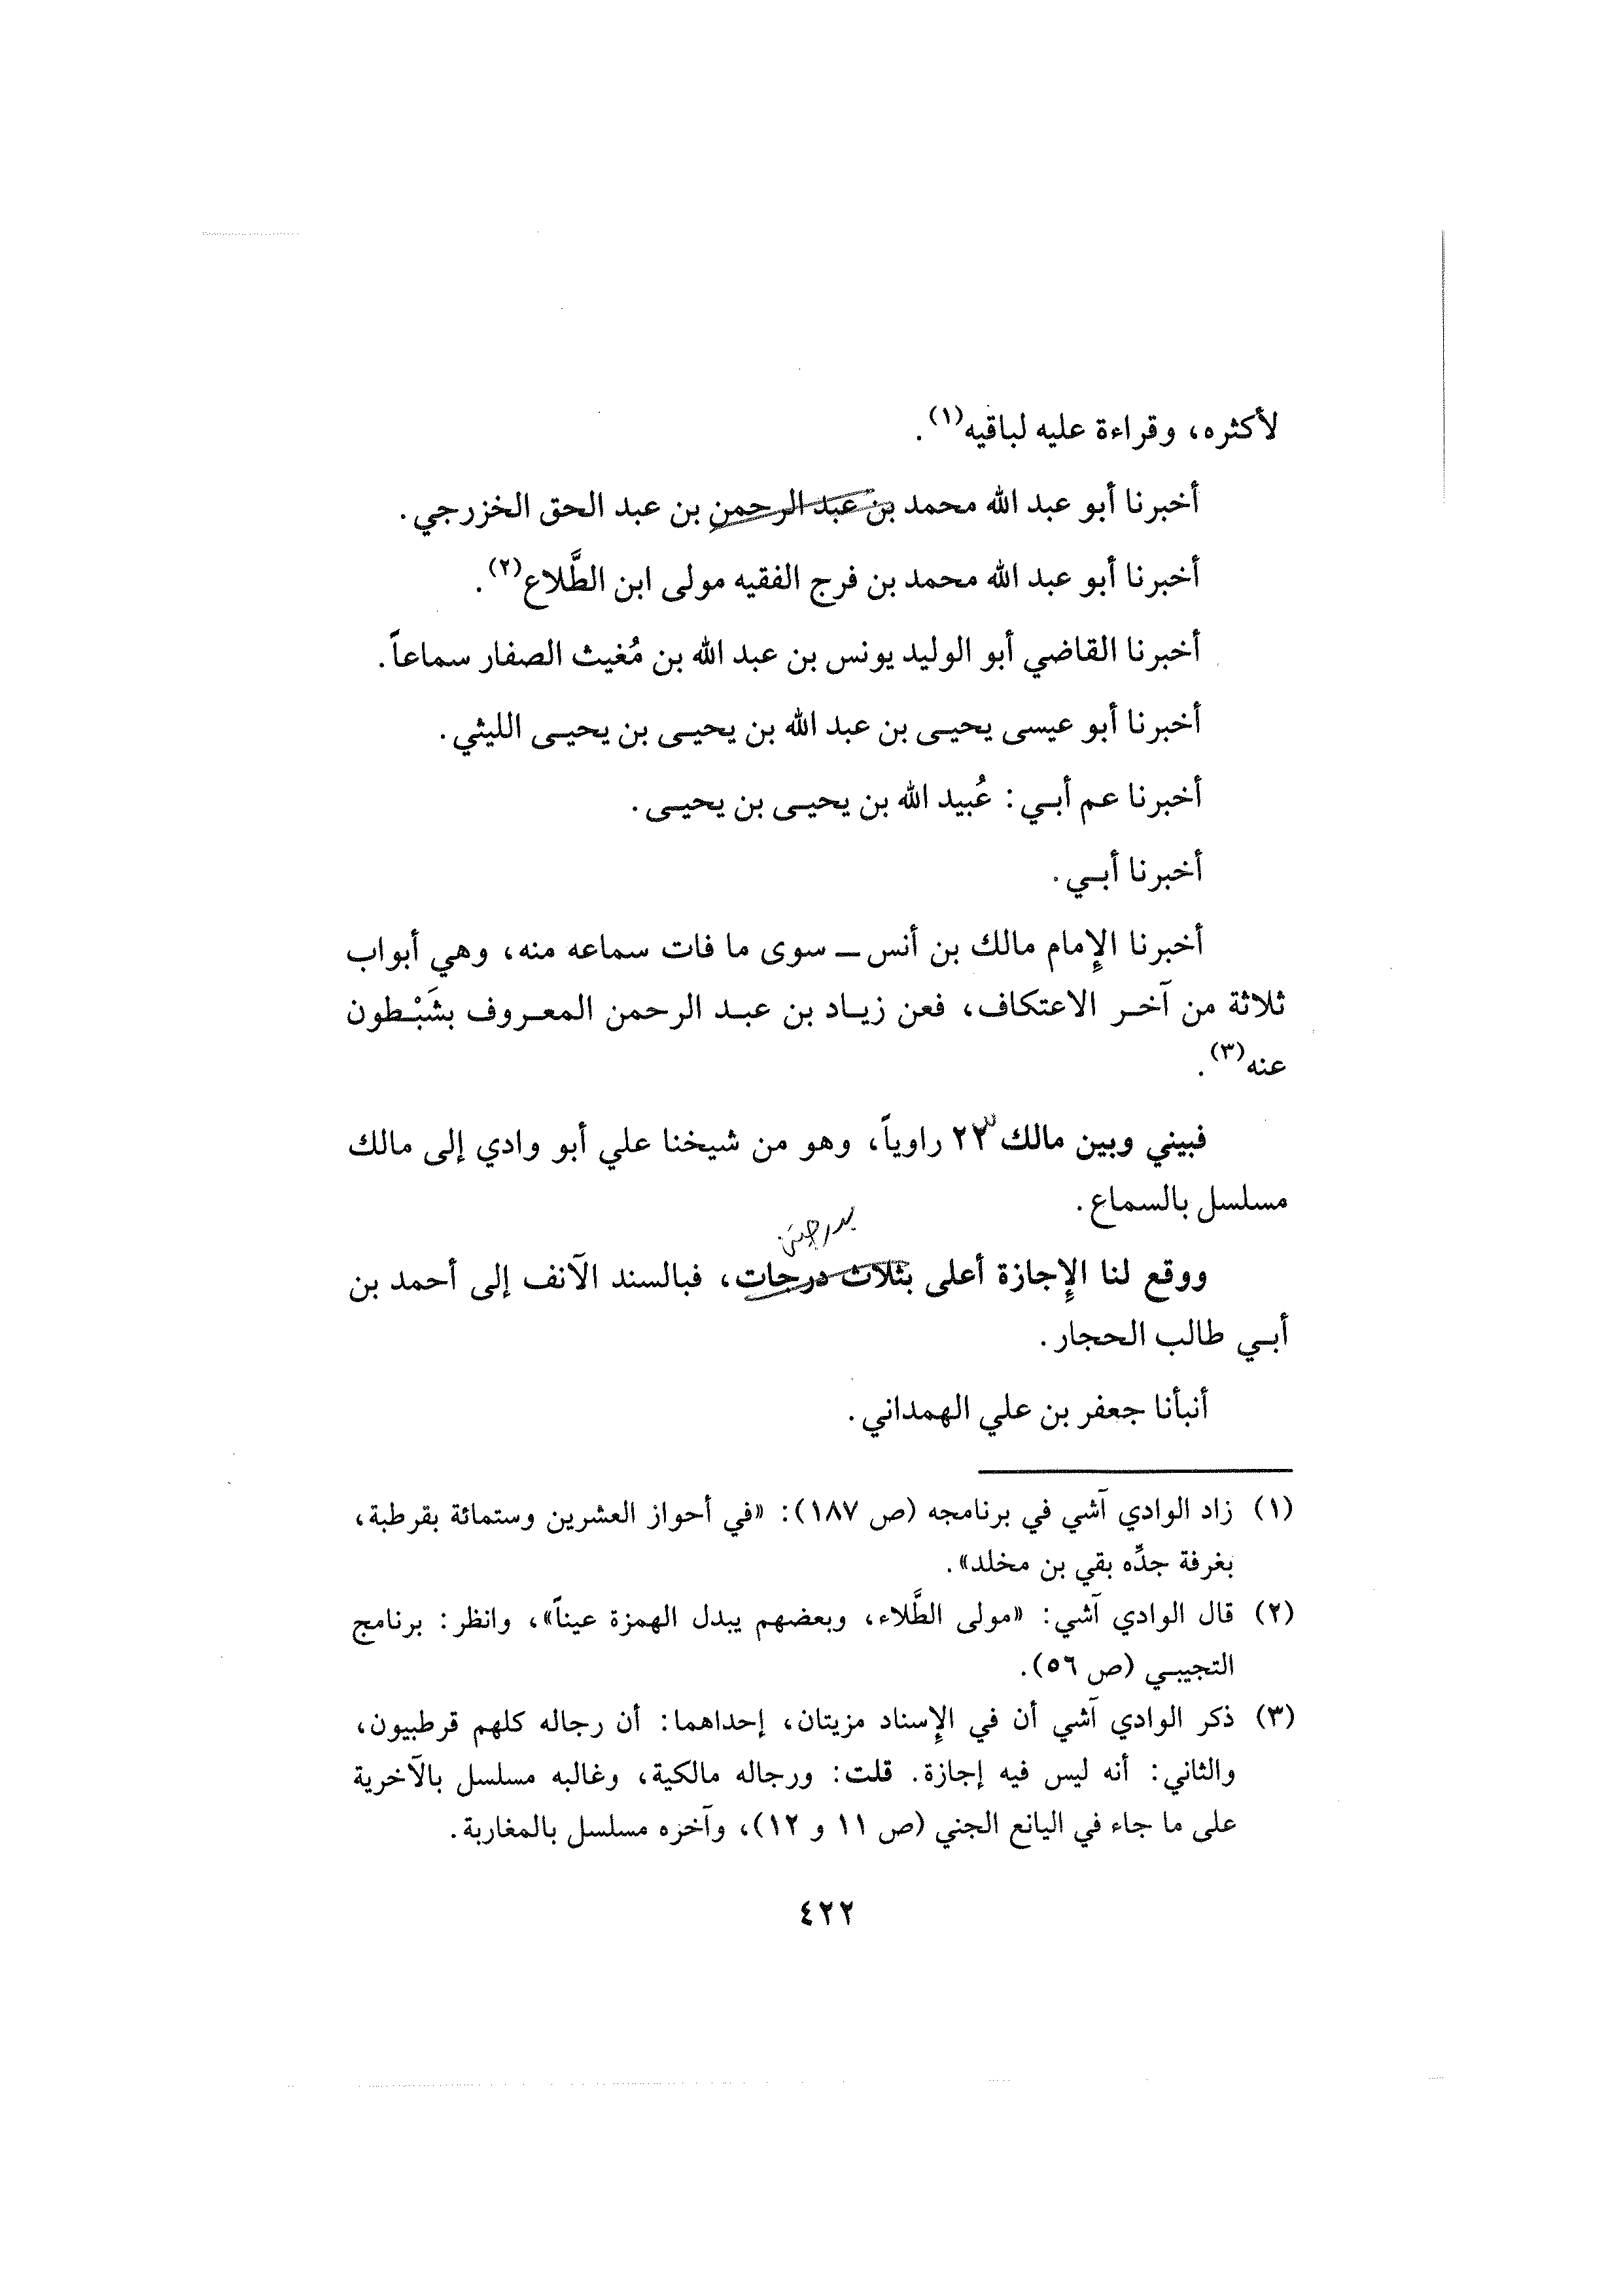 لأكثره، وقراءة عليه لباقيه(١).
أخبرنا أبو عبد الله محمد بن عبد الرحمن بن عبد الحق الخزرجي.
أخبرنا أبو عبد الله محمد بن فرج الفقيه مولى ابن الطَّلاع(٢).
أخبرنا القاضي أبو الوليد يونس بن عبد الله بن مُغيث الصفار سماعاً.
أخبرنا أبو عيسى يحيـى بن عبد الله بن يحيـى بن يحيـى الليثي.
أخبرنا عم أبـي: عُبيد الله بن يحيـى بن يحيـى.
أخبرنا أبـي.
أخبرنا الإمام مالك بن أنس ــ سوى ما فات سماعه منه، وهي أبواب
ثلاثة من آخر الاعتكاف، فعن زياد بن عبد الرحمن المعروف بشَبْطون
عنه(٣).
فبيني وبين مالك ٢٢ راوياً، وهو من شيخنا علي أبو وادي إلى مالك
مسلسل بالسماع.
بدرجتين
ووقع لنا الإجازة أعلى بثلاث درجات، فبالسند الآنف إلى أحمد بن
أبـي طالب الحجار.
أنبأنا جعفر بن علي الهمداني.
(١) زاد الوادي آشي في برنامجه (ص ١٨٧): «في أحواز العشرين وستمائة بقرطبة،
بغرفة جدِّه بقي بن مخلد».
(٢) قال الوادي آشي: «مولى الطَّلاء، وبعضهم يبدل الهمزة عيناً»، وانظر: برنامج
التجيبـي (ص ٥٦).
(٣) ذكر الوادي آشي أن في الإسناد مزيتان، إحداهما: أن رجاله كلهم قرطبيون،
والثاني: أنه ليس فيه إجازة. قلت: ورجاله مالكية، وغالبه مسلسل بالآخرية
على ما جاء في اليانع الجني (ص ١١ و ١٢)، وآخره مسلسل بالمغاربة.
٤٢٢